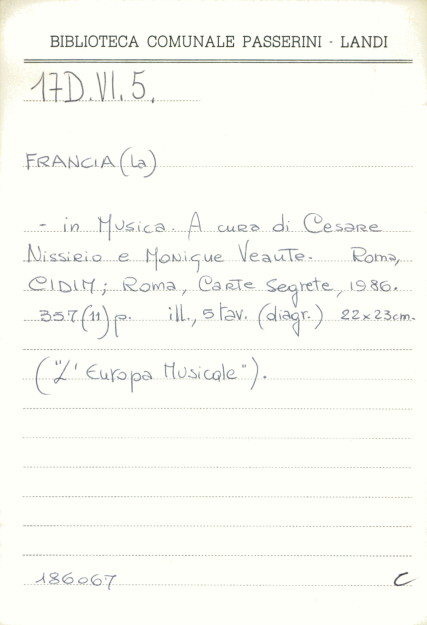 BIBLIOTECA COMUNALE PASSERINI - LANDI
17D.VI.5.
FRANCIA (La)
- in Musica. A cura di Cesare
Nissirio e Monique Veaute. Roma,
CIDIM; Roma, Carte Segrete, 1986.
357(11)p. ill., 5 tav. (diagr.) 22x23cm.
("L'Europa Musicale").
186067 C